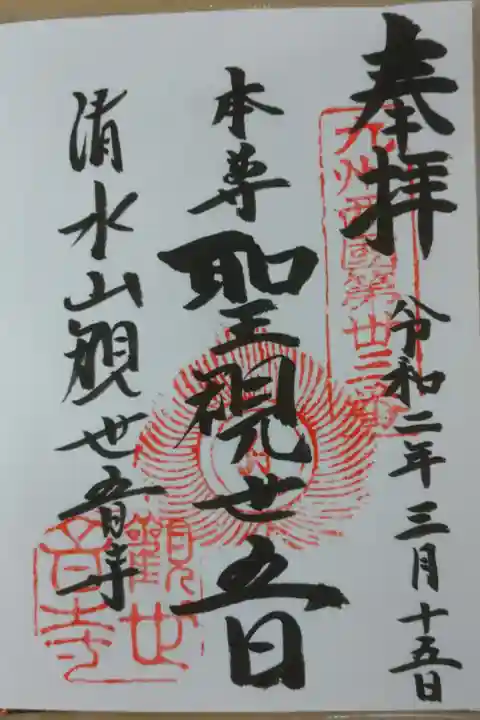 奉拝
九州西國第廿三番
令和二年三月十五日
本尊
聖観世五日
清水山観世音寺
觀世音寺